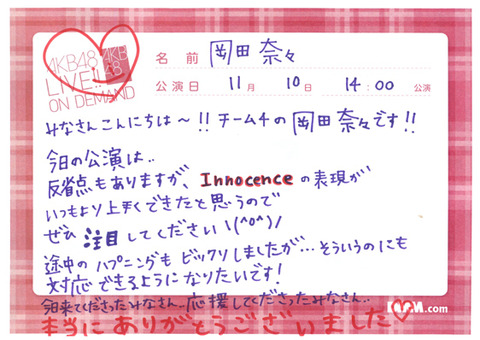 AKB48
LIVE!!
ON DEMAND
AKB
48
名前 岡田奈々
公演日 11月 10日 14:00 公演
みなさんこんにちは〜!!チーム4の岡田奈々です!!
今日の公演は..
反省点もありますが、Innocenceの表現が
いつもより上手くできたと思うので
ぜひ注目してください\(^o^)/
途中のハプニングもビックリしましたが…そういうのにも
対応できるようになりたいです!
今日来てくださったみなさん..応援してくださったみなさん..
本当にありがとうございました♡
DMM.com